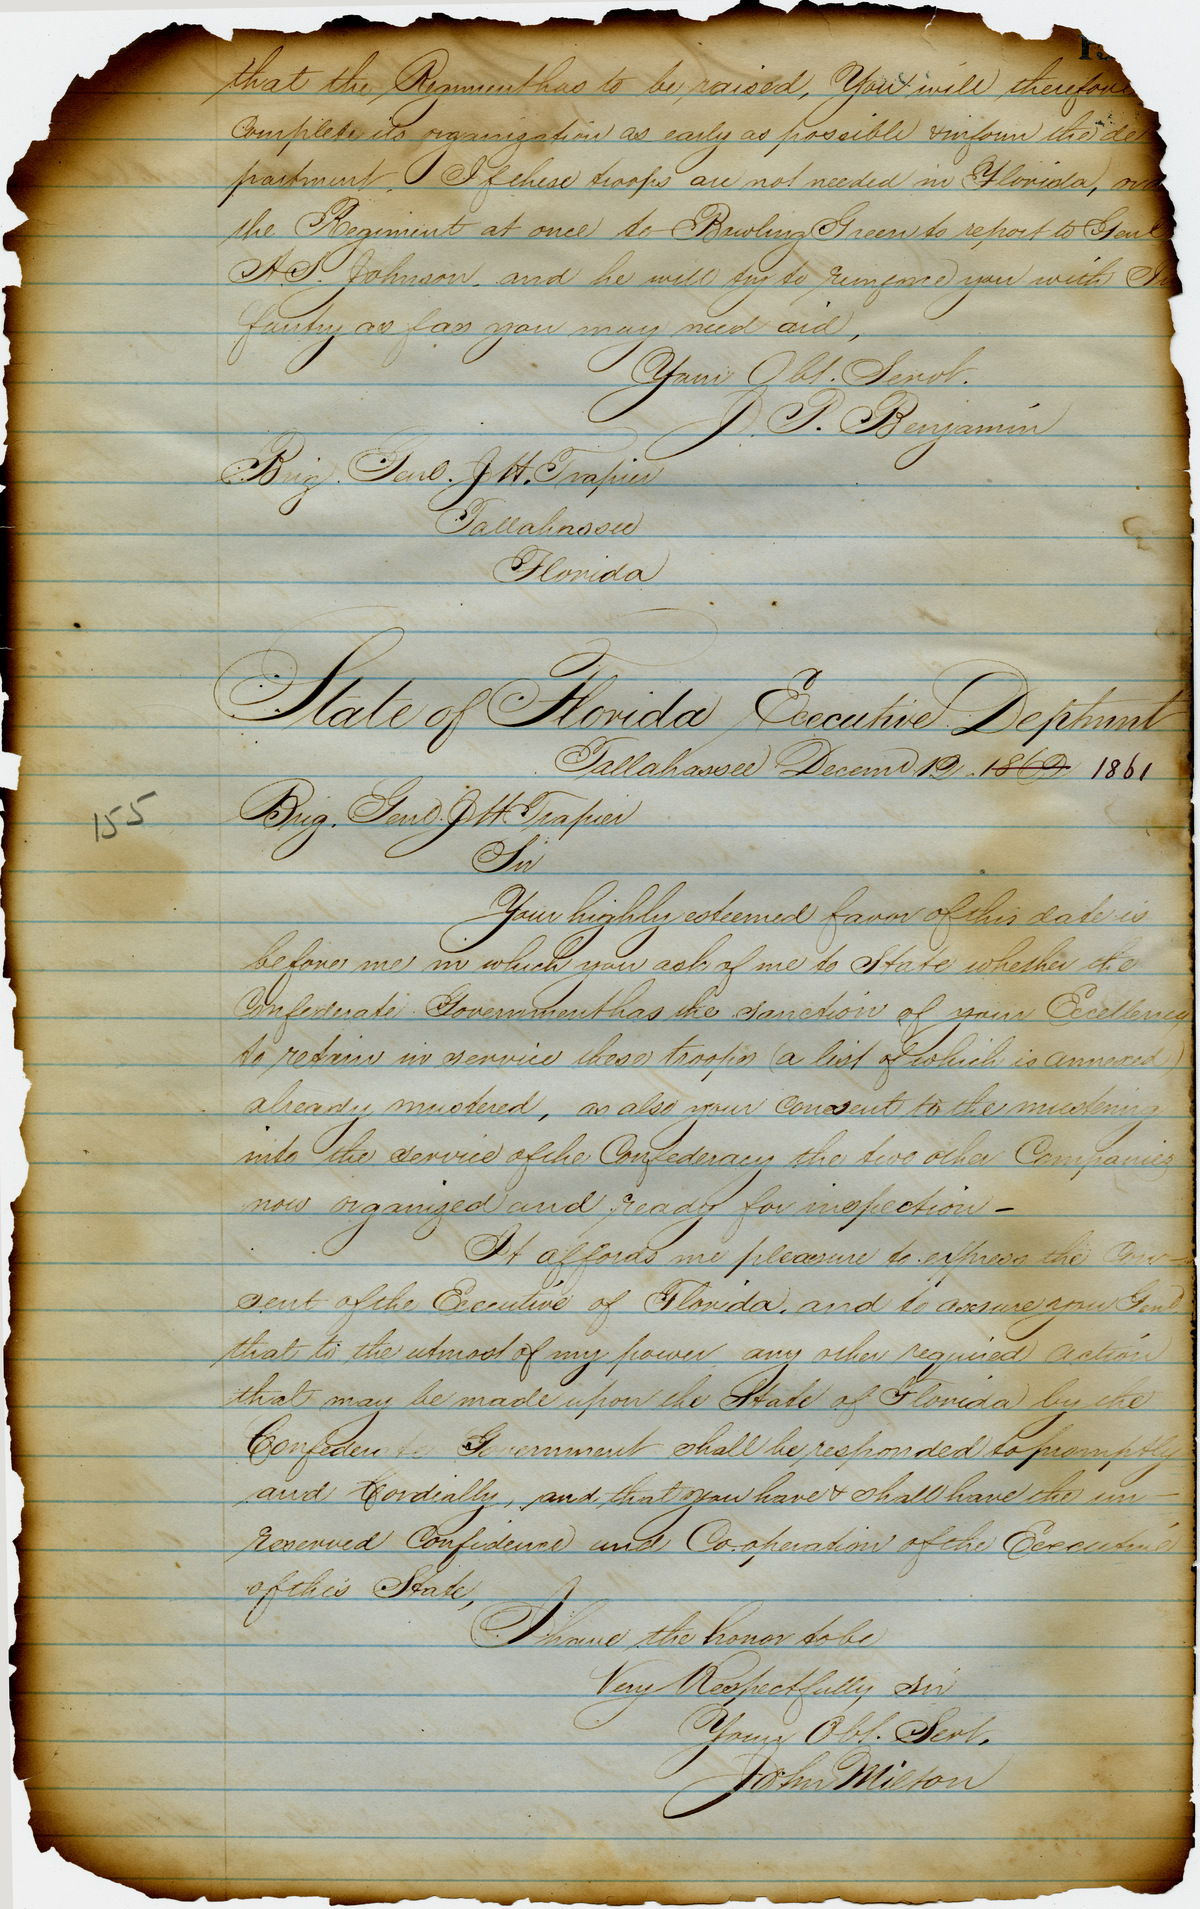 that the Regiment has to be raised, You will therefore
Complete its organization as early as possible & inform the de
partment. If these troops are not needed in Florida,
the Regiment at once to Bowling Green to report to Genl
A S. Johnson. and he will try to reinforce you with In
fantry as far you may need aid,
Your Obt. Servt.
J. P. Benjamin
Brig. Genl. J H. Trapier
Tallahassee
Florida
State of Florida Executive Deptmnt
Tallahassee Decem 12 1862 1861
155
Brig. Genl. J H. Trapier
Sir
Your highly esteemed favor of this date is
before me in which you ask of me to State whether the
Confederate Government has the sanction of your Excellency
to retain in service these troops (a list of which is annexed)
already mustered, as also your Consent to the mustering
into the service of the Confederacy the two other Companies
now organized and ready for inspection –
It affords me pleasure to express the Con–
sent of the Executive of Florida, and to assure you Genl
that to the utmost of my power any other required action
that may be made upon the State of Florida by the
Confederate Government shall be responded to promptly
and Cordially, and that you have & shall have the un–
reserved Confidence and Co.operation of the Executive
of this State,
I have the honor to be
Very Respectfully Sir
Your Obt. Servt.
John Milton